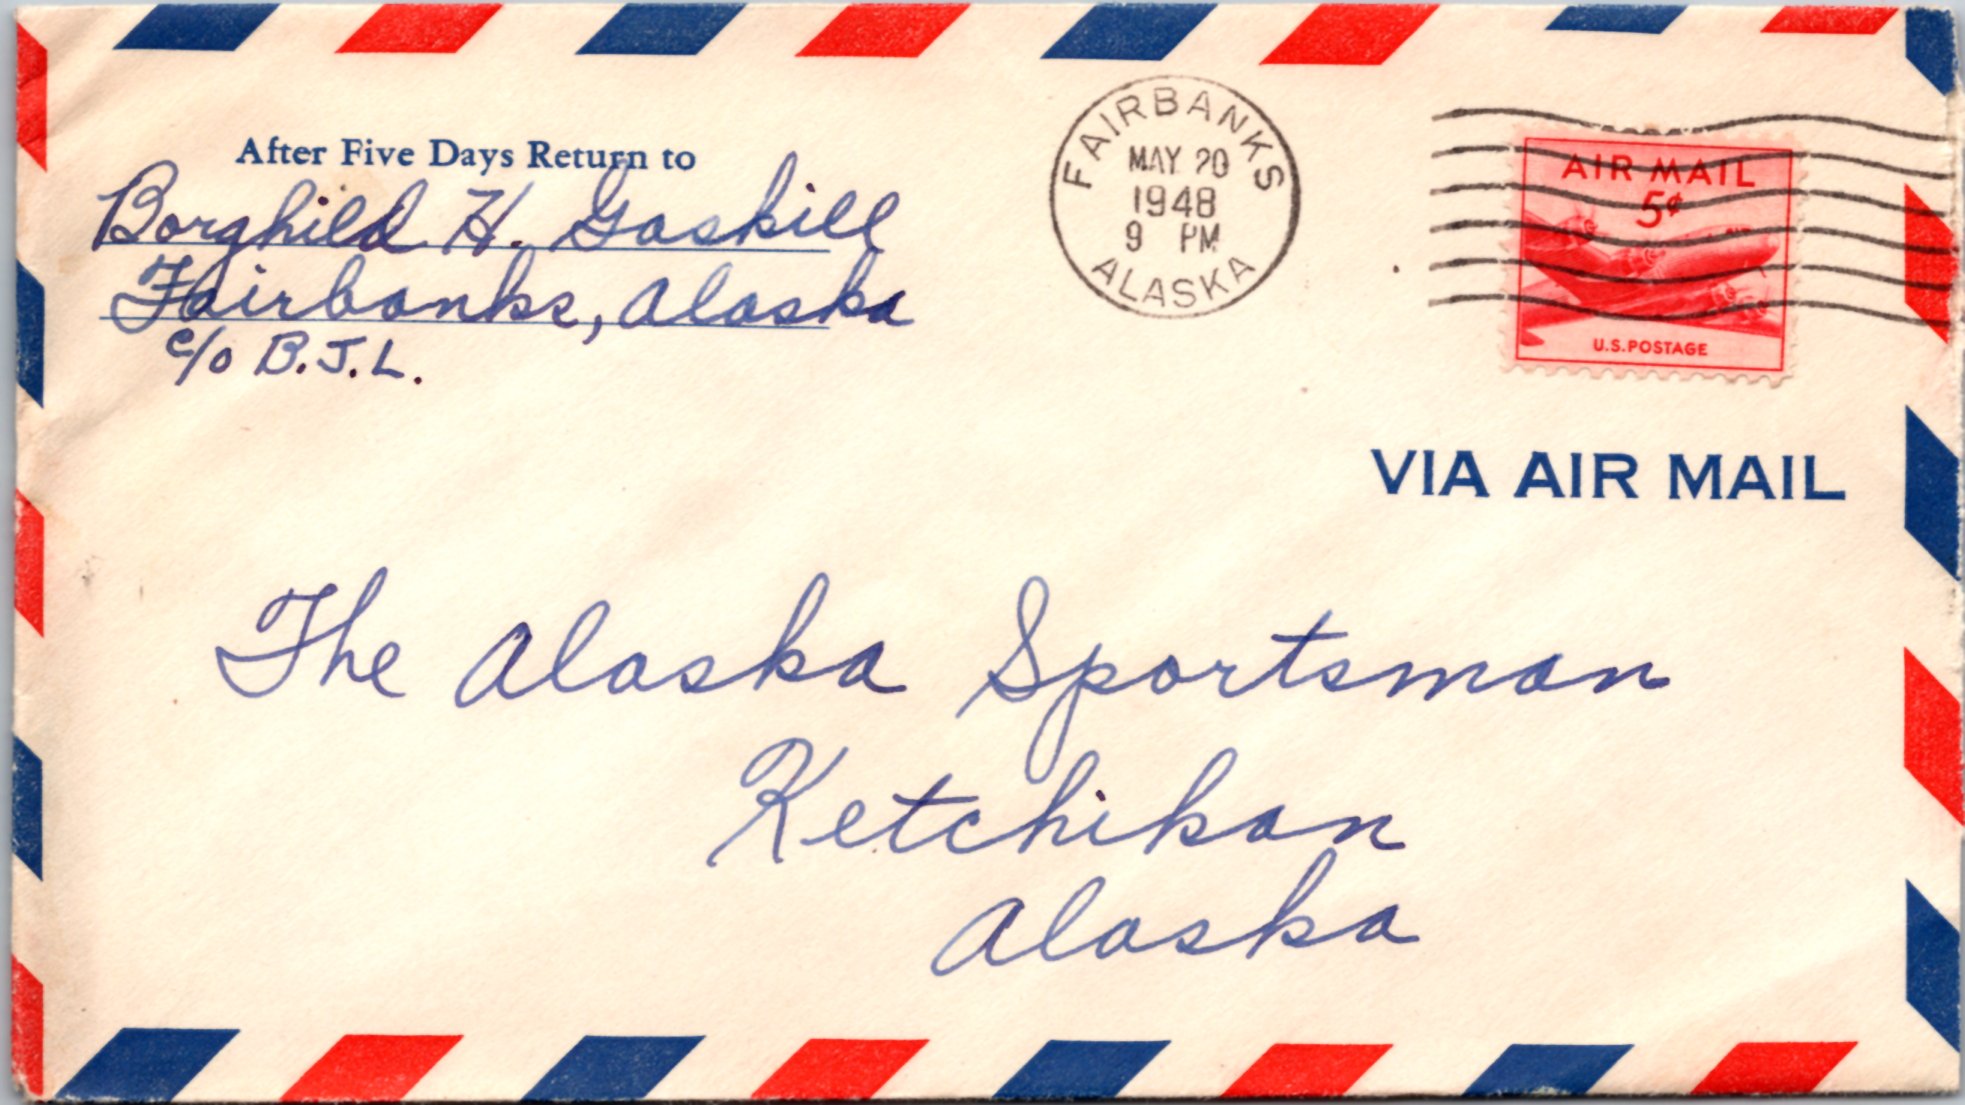 After Five Days Return to
Borghild H. Gaskill
Fairbanks, Alaska
c/o B.J.L.
FAIRBANKS
MAY 20
1948
9 PM
ALASKA
AIR MAIL
5¢
U.S. POSTAGE
VIA AIR MAIL
The Alaska Sportsman
Ketchikan
Alaska